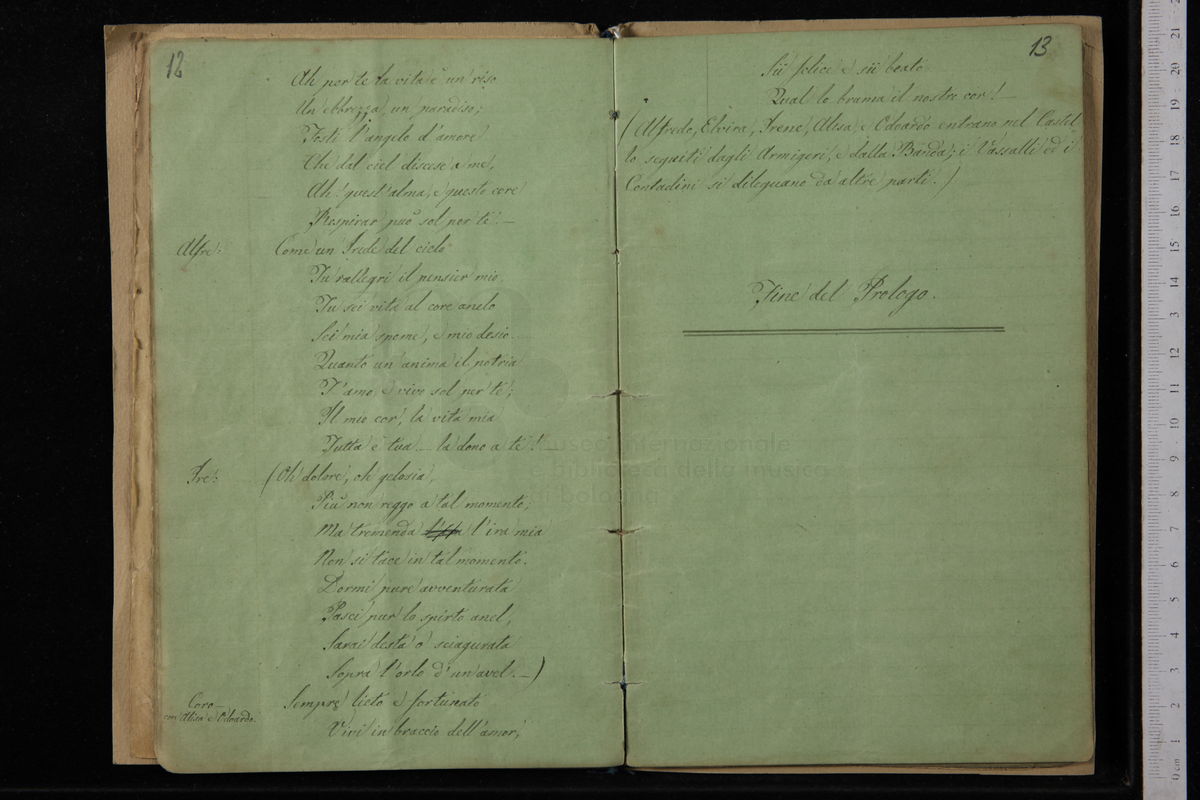 12
Ah per te la vita è un riso
Un ebbrezza, un paradiso;
Fosti l'angelo d'amore
Che dal ciel discese a me,
Ah! quest'alma, e questo core
Respirar può sol per te! —
Alfre: Come un Iride del cielo
Tu rallegri il pensier mio
Tu sei vita al core anelo
Sei mia speme, e mio desio.
Quanto un'anima il potria
T'amo, e vivo sol per te;
Il mio cor, la vita mia
Tutta è tua — la dono a te! —
Ire: (Oh dolore, oh gelosia,
Più non reggo a tal momento;
Ma tremenda l'ira mia
Non si tace in tal momento.
Dormi pure avventurata
Pasci pur lo spirto anel,
Sarai desta o sciagurata
Sopra l'orlo d'un avel. —)
Coro
con Alisa e Odoardo.
Sempre lieto e fortunato
Vivi in braccio dell'amor,
13
Sii felice e sii beato
Qual lo brama il nostro cor! —
(Alfredo, Elvira, Irene, Alisa, e Odoardo entrano nel Castel
lo seguiti dagli Armigeri, e dalla Banda; i Vassalli ed i
Contadini si dileguano da altre parti.)
Fine del Prologo.
museo internazionale
biblioteca della musica
di bologna